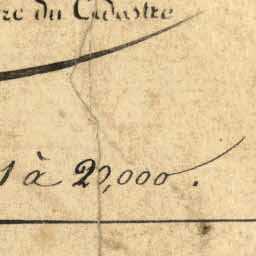 re du Cadastre
1 à 20,000.